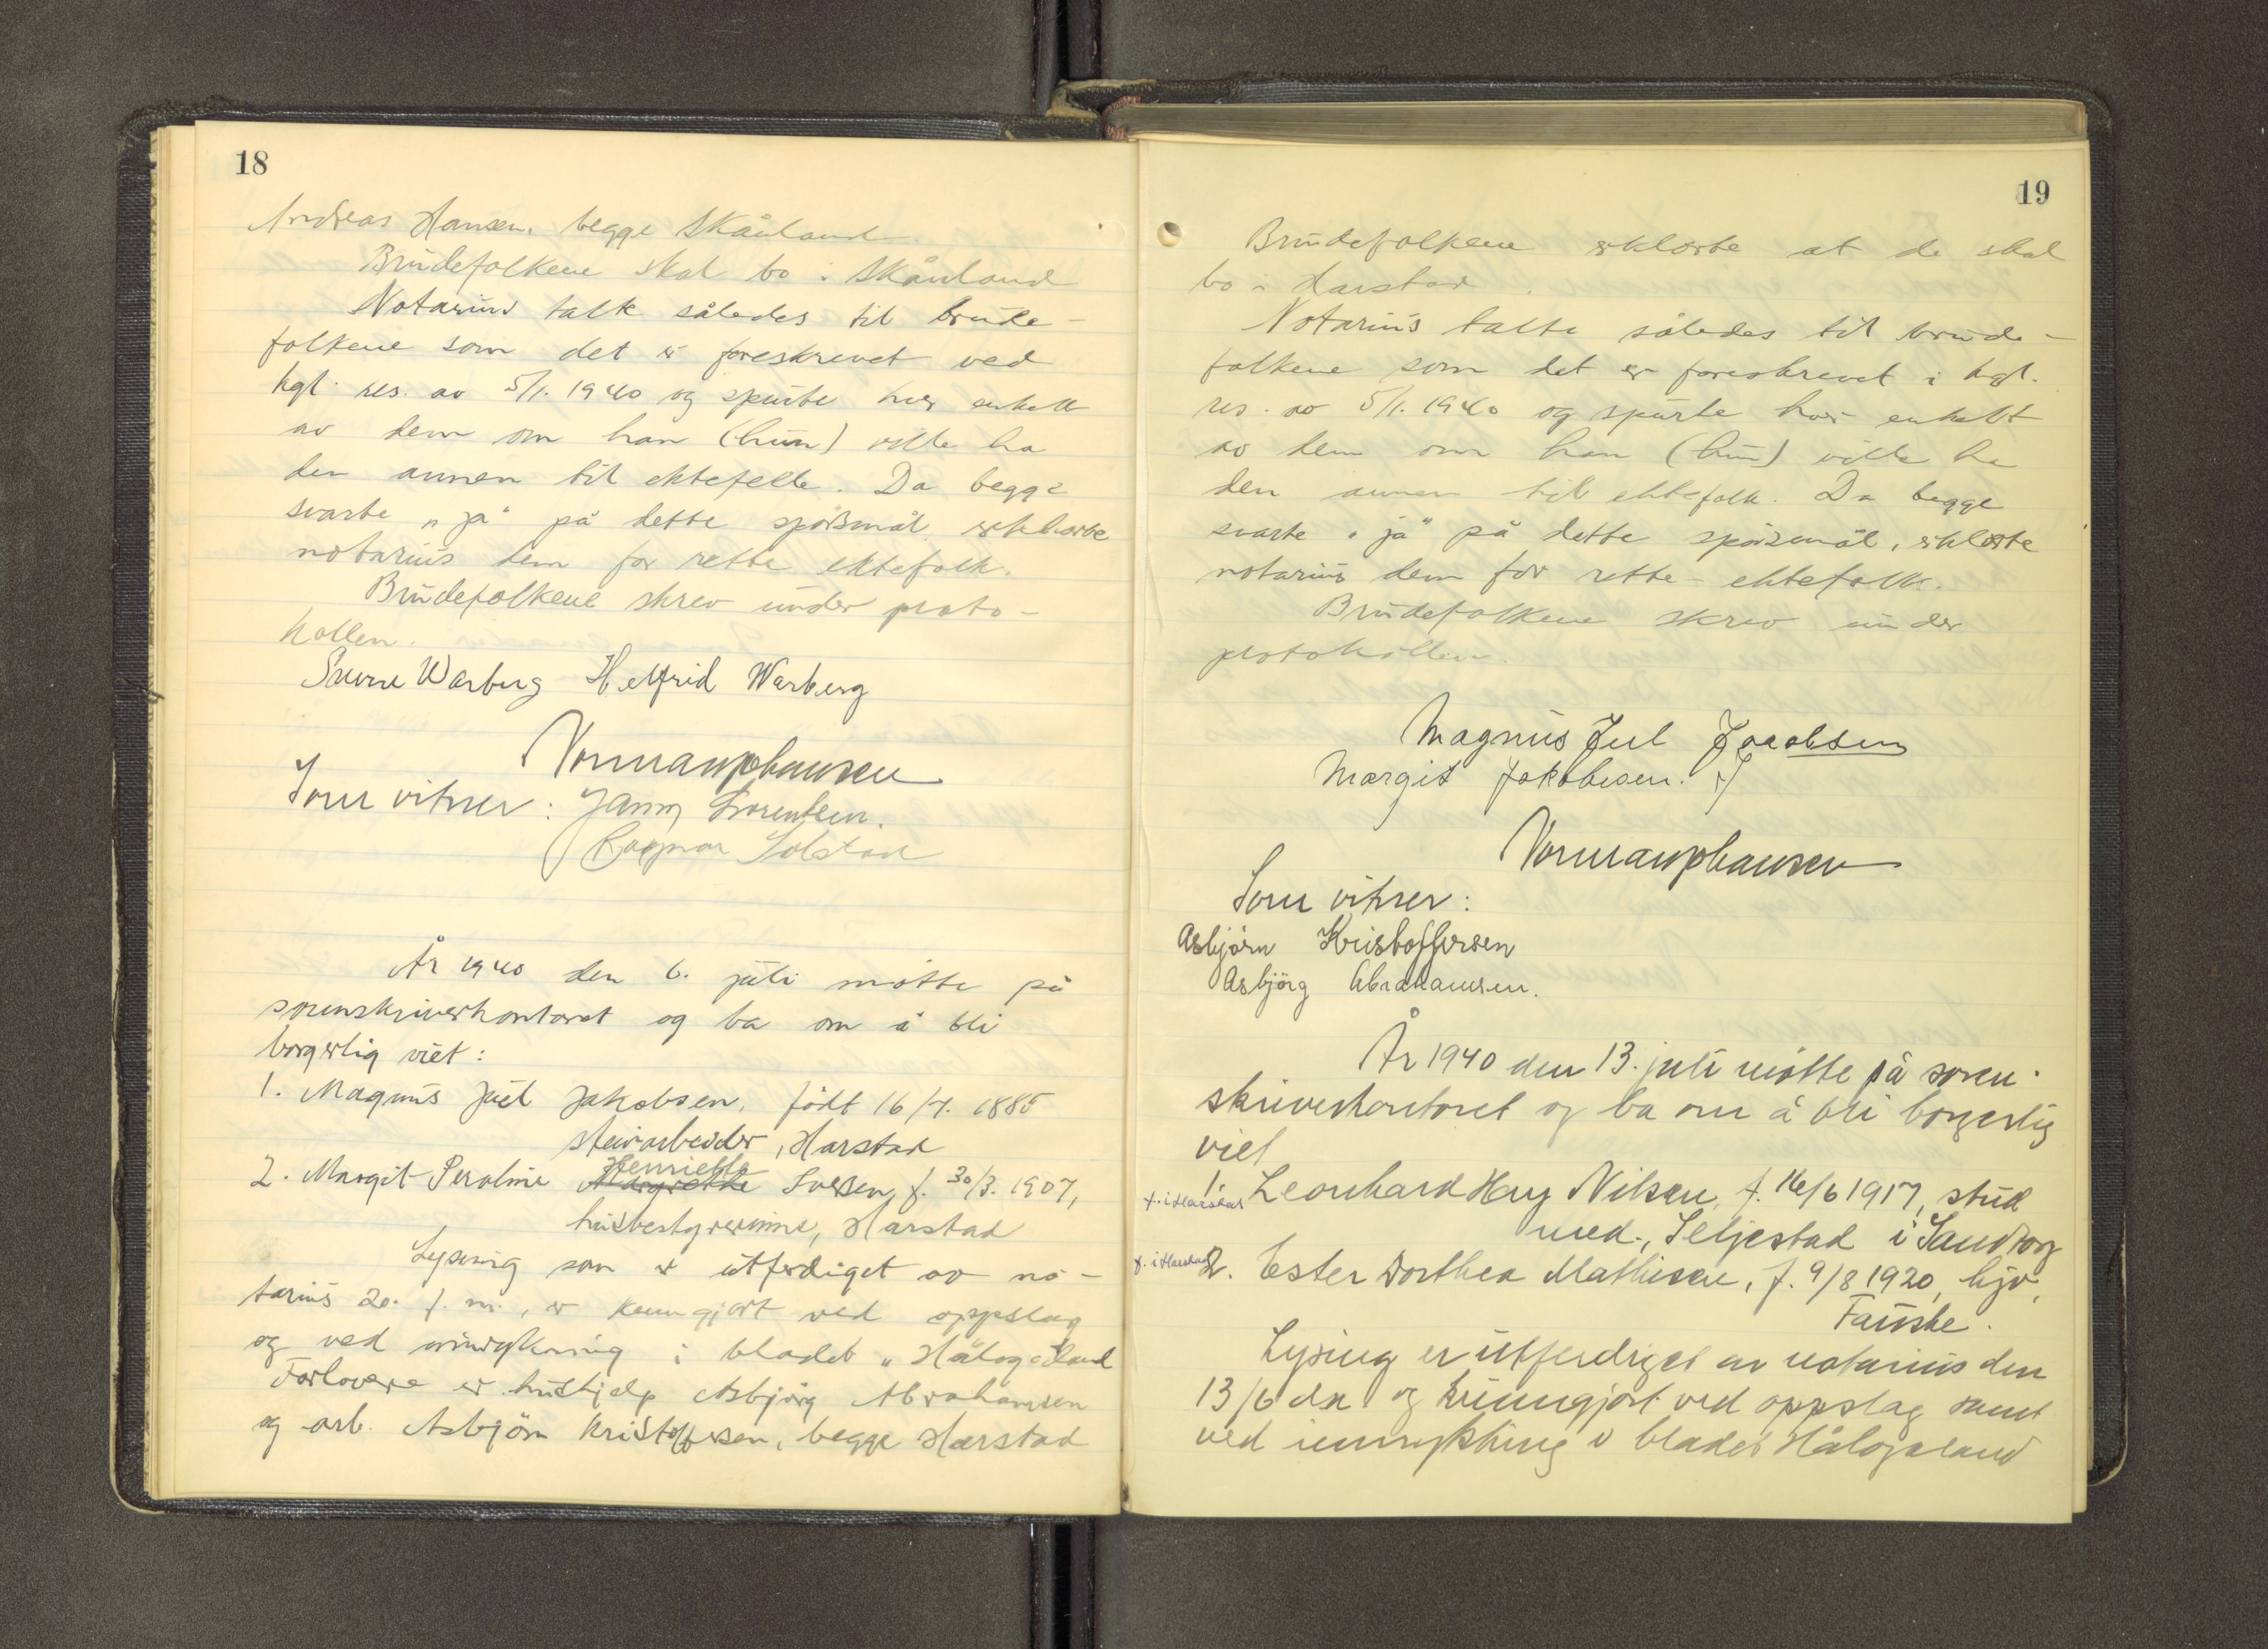 18
Andreas Hansen, begge Skånland
Brudefolkene skal bo i Skånland
Notarius talte således til brude-
folkene som det er foreskrevet ved
kgl. res. av 5/1. 1940 og spurte hver enkelt
av dem om han (hun) ville ha
den annen til ektefelle. Da begge
svarte "ja" på dette spörsmål erklærte
notarius dem for rette ektefolk.
Brudefolkene skrev under proto-
kollen.
Sverre Warberg Helfrid Warberg
Normann
Som vitner: Jenny Lorentsen.
Ragnar Solstad
År 1940 den 6. juli møtte på
sorenskriverkontoret og ba om å bli
borgerlig viet:
1. Magnus Juel Jakobsen, född 16/7. 1885
steinarbeider, Harstad
Henriette
2. Margit Peroline Margrethe Svensen, f. 30/3. 1907,
husbestyrerinne, Harstad
Lysning som er utferdiget av no-
tarius 20. f. m., er kunngjort ved oppslag
og ved innrykning i bladet "Hålogaland
Forlovere er hushjelp Asbjörg Abrahamsen
og arb. Asbjörn Kristoffersen, begge Harstad
19
Brudefolkene erklærte at de skal
bo i Harstad.
Notarius talte således til brude-
folkene som det er foreskrevet i kgl.
res. av 5/1. 1940 og spurte hver enkelt
av dem om han (hun) ville ha
den annen til ektefolk. Da begge
svarte "ja" på dette spörsmål, erklærte
notarius dem for rette ektefolk.
Brudefolkene skrev under
protokollen.
Magnus Jul Jacobsen
Margit Jakobsen.
Normann
Som vitner:
Asbjörn Kristoffersen
Asbjörg Abrahamsen.
År 1940 den 13. juli mötte på soren-
skriverkontoret og ba om å bli borgerlig
viet
f. i Harstad 1. Leonhard Hay Nilsen, f. 16/6 1917, stud
med., Seljestad i Sandtorg
f. i Harstad 2. Ester Dorthea Mathisen, f. 9/8 1920, hjv,
Fauske.
Lysing er utferdiget av notarius den
13/6 da og kunngjort ved oppslag samt
ved innrykning i bladet Hålogaland